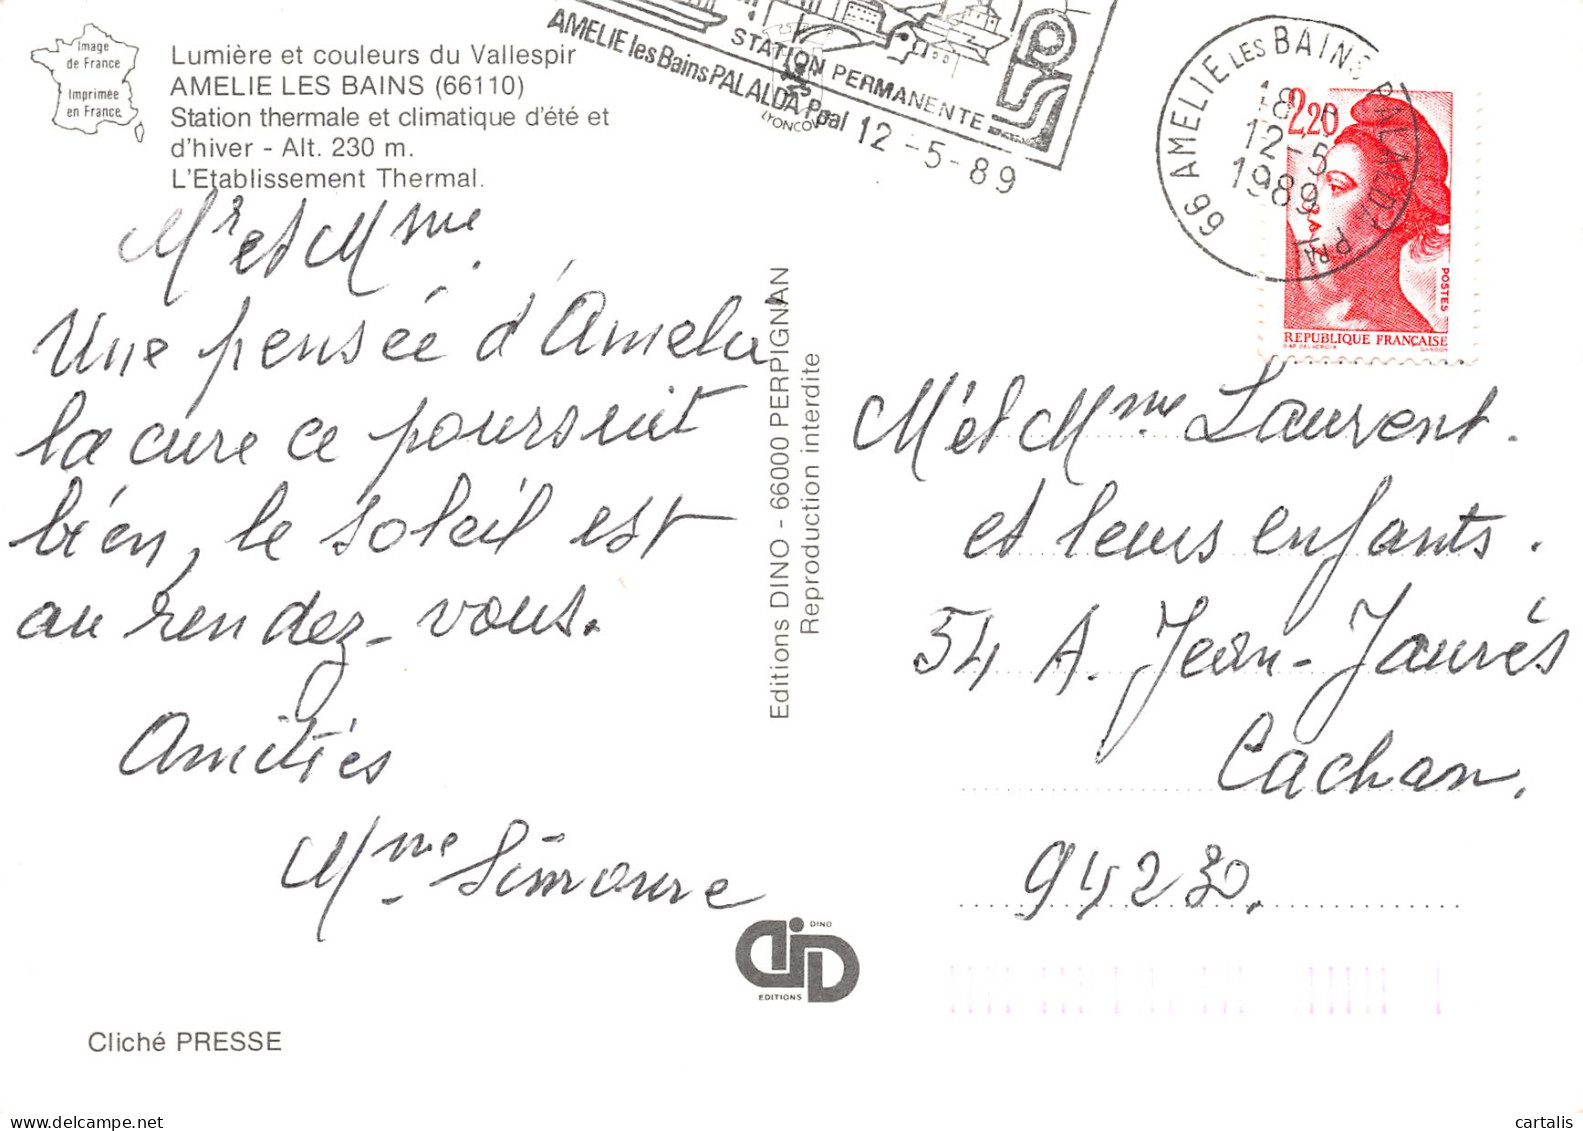 Image
de France
Imprimée
en France
Lumière et couleurs du Vallespir
AMELIE LES BAINS (66110)
Station thermale et climatique d'été et
d'hiver - Alt. 230 m.
L'Etablissement Thermal.
STATION PERMANENTE
AMELIE les Bains PALALDA Ppal 12 -5 -89
66 AMELIE LES BAINS PALALDA PPAL
18 H
12-5
1989
2,20
POSTES
REPUBLIQUE FRANÇAISE
Mr et Mme.
Une pensée d'Amelie
la cure ce poursuit
bien, le soleil est
au rendez-vous.
Amitiés
Mme
Editions DINO - 66000 PERPIGNAN
Reproduction interdite
Mr et Mme Laurent.
et leurs enfants.
54 A. Jean-Jaurés
Cachan.
94230.
DINO
EDITIONS
Cliché PRESSE
cartalis